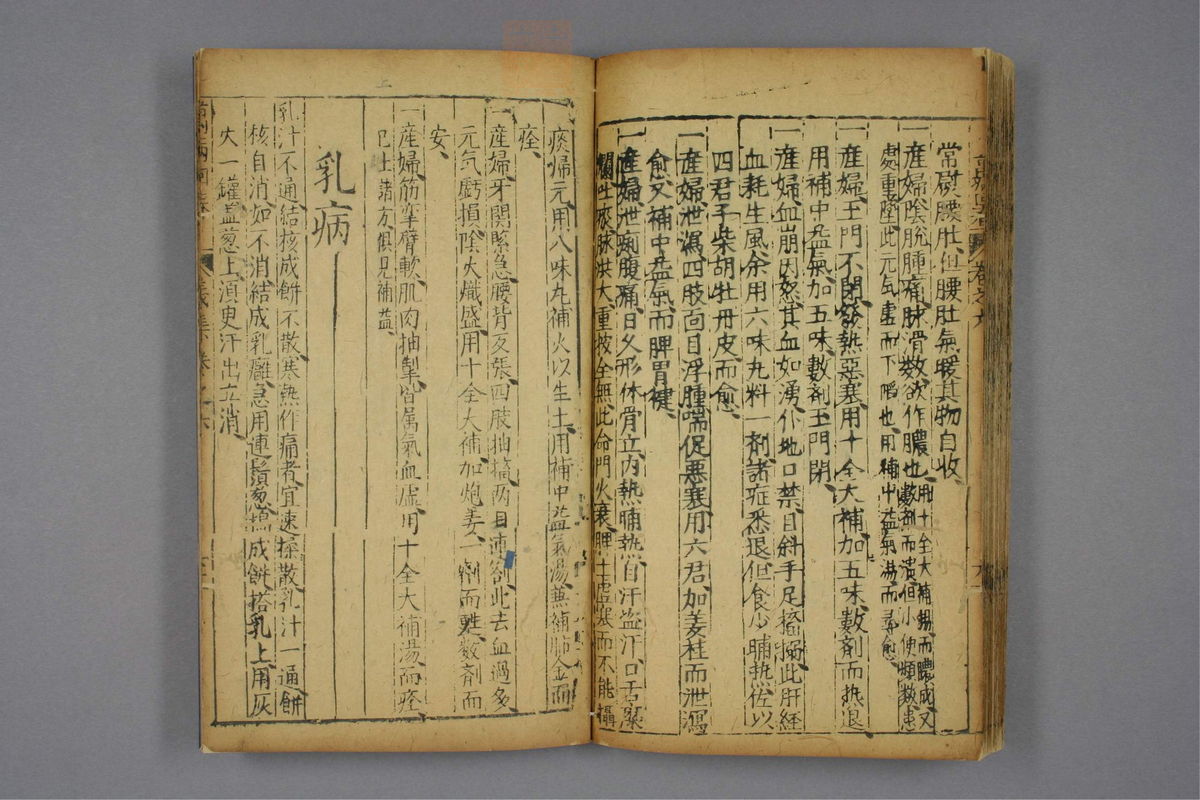 常慰腰肚但腰肚氣暖其物自收
一産婦陰脫腫痛脉滑数欲作膿也用十全大補湯而膿成又數剤而潰但小便頻数患
處重墜此元气虛而下陷也用補中益氣湯而尋愈
一産婦玉門不閉發熱惡寒用十全大補加五味數剤而热退
用補中益氣加五味數剤玉門閉
一産婦血崩因怒其血如湧仆地口禁目斜手足搐搦此肝経
血耗生風余用六味丸料一剤諸症悉退但食少晡热佐以
四君子柴胡牡丹皮而愈
一産婦泄瀉四肢面目浮腫喘促惡寒用六君加姜桂而泄瀉
愈又補中益氣而脾胃健
一産婦泄痢腹痛日久形体骨立内熱晡热自汗盗汗口舌糜
爛吐痰脉洪大重按全無此命門火衰脾土虛寒而不能攝
痰歸元用八味丸補火以生土用補中益氣湯兼補肺金而
痊
一産婦牙關緊急腰背反張四肢抽搐两目連劄此去血過多
元气虧損陰火熾盛用十全大補加炮姜一剤而甦数剤而
安
一産婦筋攣臂軟肌肉抽掣皆属氣血虛用十全大補湯而痊
已上諸方俱見補益
乳病
乳汁不通結核成餅不散寒熱作痛者宜速揉散乳汁一通餅
核自消如不消結成乳癰急用連鬚葱搗成餅搭乳上用灰
火一罐盖葱上須臾汗出立消